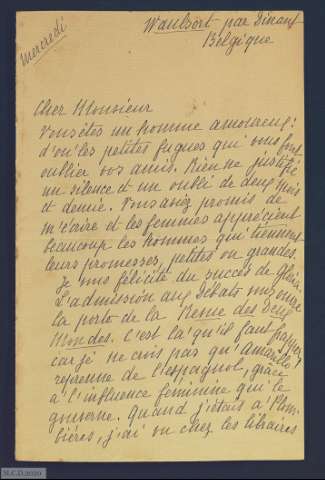 mercredi
Waulsort par Dinant
Belgique
Cher Monsieur
Vous êtes un homme amoureux:
d'où les petites fugues qui vous font
oublier vos amis. Rien ne justifie
un silence et un oubli de deux mois
et demie. Vous aviez promis de
m'écrire et les femmes apprécient
beaucoup les hommes qui tiennent
leurs promesses, petites ou grandes.
Je vous félicite du succès de
L'admission aux Débats vous ouvre
la porte de la Revue des Deux
Mondes. C'est là qu'il faut frapper,
car je ne crois pas qu'Amarillo
reprenne de l'espagnol, grâce
à l'influence féminine qui le
gouverne. Quand j'étais à Plom-
bières, j'ai vu chez les libraires
M.C.D. 2020